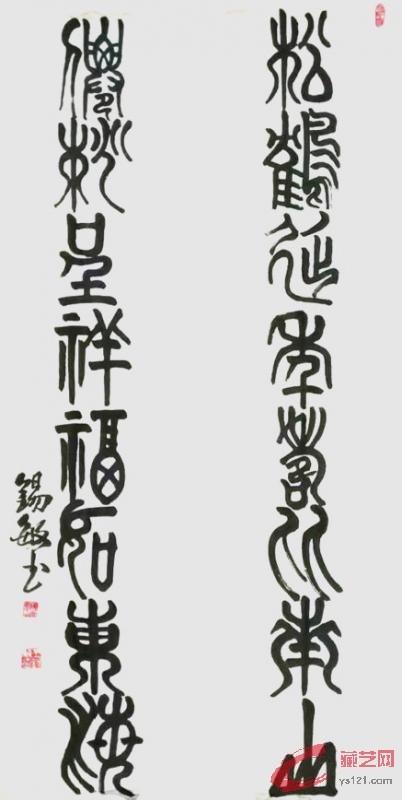 松鶴延年壽比南山
僊桃呈祥福如東海
錫敏书
藏艺网
ys121.com